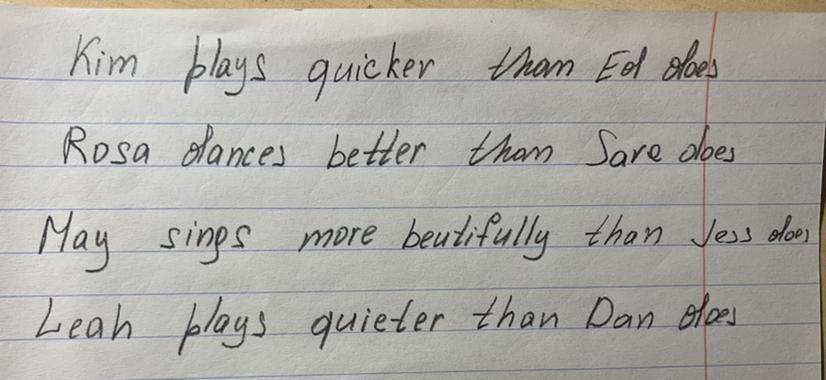 Kim plays quicker than Ed does
Rosa dances better than Sara does
May sings more beutifully than Jess does
Leah plays quieter than Dan does